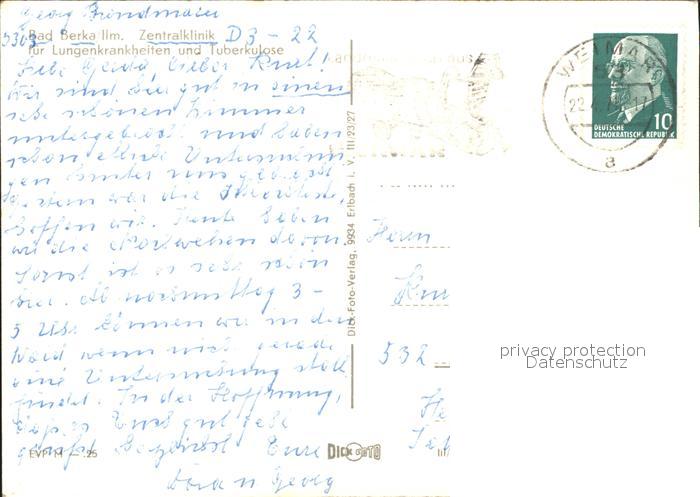 Georg
5303 Bad Berka Ilm. Zentralklinik D3-22
für Lungenkrankheiten und Tuberkulose
Liebe Gerda, lieber Knut!
Wir sind hier gut in einem
sehr schönen Zimmer
untergebracht und haben
schon etliche Untersuchun
gen hinter uns gebracht
Gestern war die
hoffen wir. Heute haben
wir die Nachwehen davon
Sonst ist es sehr schön
hier. Ab nachmittag 3 -
5 Uhr können wir in den
Wald wenn nicht gerade
eine Untersuchung statt
findet. In der Hoffnung,
daß es Euch gut geht
grüßt herzlichst Eure
Georg
EVP M — .25
DICK FOTO
III
Dick-Foto-Verlag, 9934 Erlbach i. V. III/23/27
WEIMAR
22.
a
10
DEUTSCHE
DEMOKRATISCHE REPUBLIK
Herrn
Knu
532
privacy protection
Datenschutz